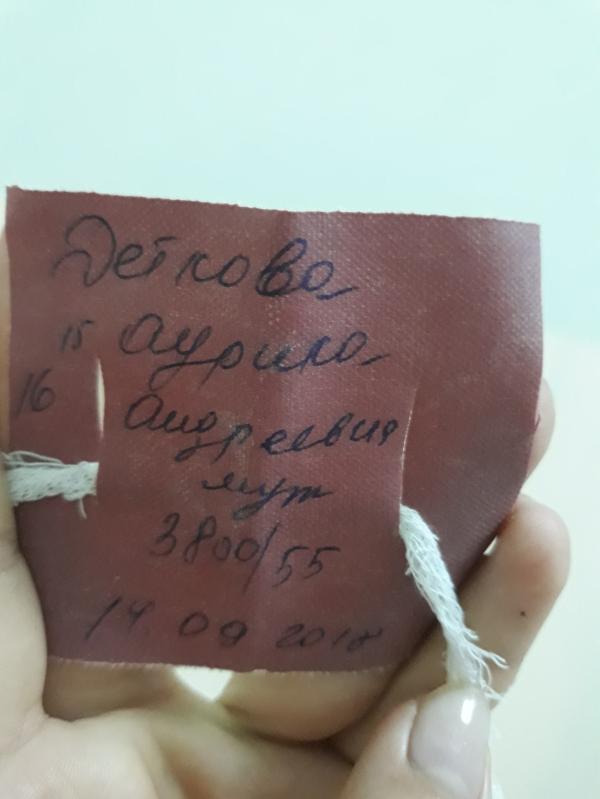 Деткова
15 Аурика
16 Андреевна
муж
3800/55
14 09 2018